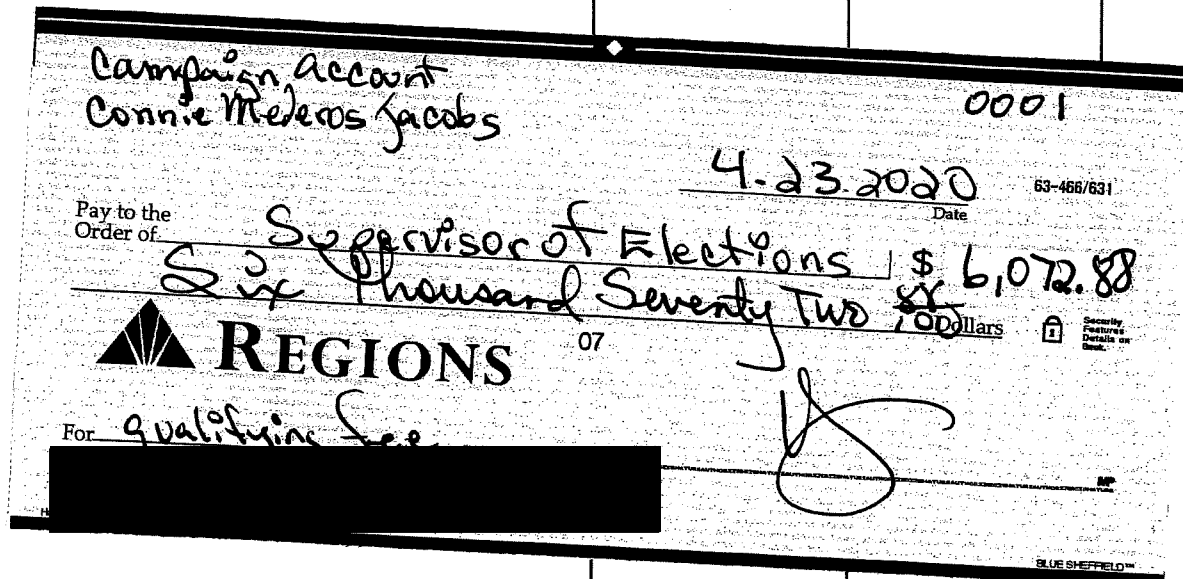 Campaign Account
Connie Mederos Jacobs
0001
4.23.2020
63-466/631
Date
Pay to the
Order of Supervisor of Elections $ 6,072.88
Six Thousand Seventy Two 88/100 Dollars
Security
Features
Details on
Back.
REGIONS
07
For qualifying fee
MP
BLUE SHEFFIELD™